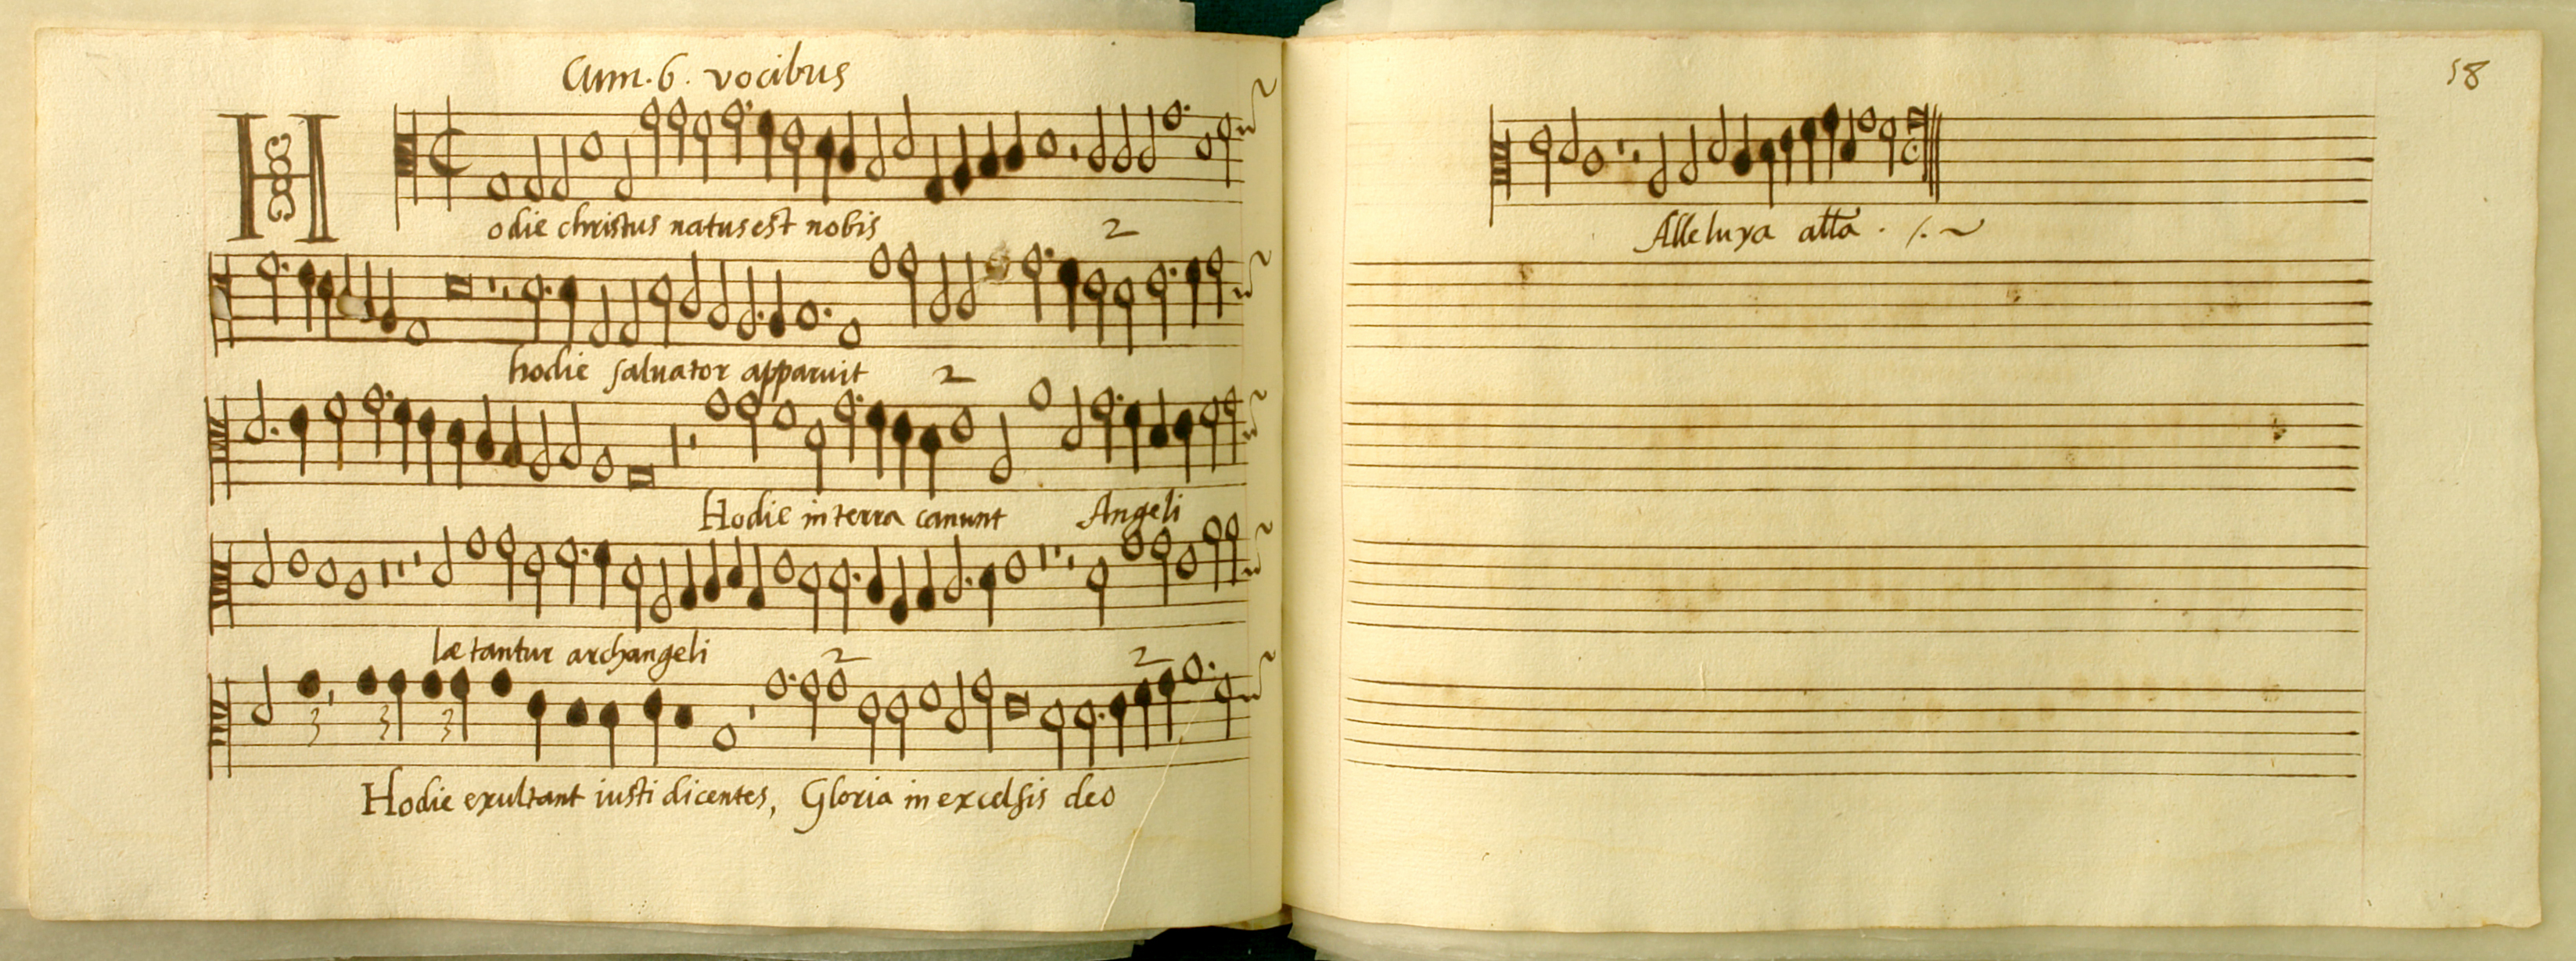 Cum. 6. vocibus
Hodie christus natus est nobis
2
hodie salvator apparuit 2
Hodie in terra canunt Angeli
lætantur archangeli 2 2
3 3 3
Hodie exultant iusti dicentes, Gloria in excelsis deo
58
Alleluya alla . /.